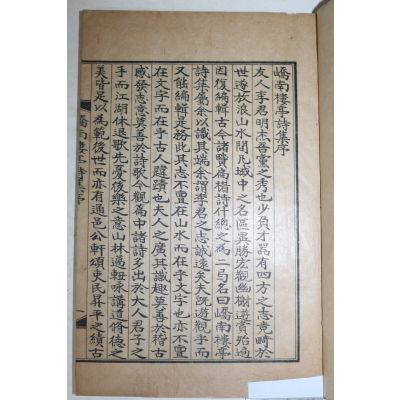 嶠南樓亭詩集序
友人李君明杰吾黨之秀也少負才器有四方之志竟畸於
世遂放浪山水間凡域中之名區異勝名觀幽榭遊賞殆遍
因復編輯古今諸賢爲楷詩什總之爲二弓名曰嶠南樓亭
詩集屬余以識其端余謂李君之志誠遠矣夫旣遊觀乎而
又能編輯是務此其志不亶在山水而在乎文字也亦不亶
在文字而在乎古人躅蹟也夫人之廣其識趣莫善於稽古
感發志意莫善於詩歌今觀篇中諸詩多出於大人君子之
手而江湖休退歌先憂後樂之意山林邁軸咏講道脩德之
美皆足以爲範後世而亦有通邑公軒頌吏民昇平之績古
嶠南樓亭詩集序
一